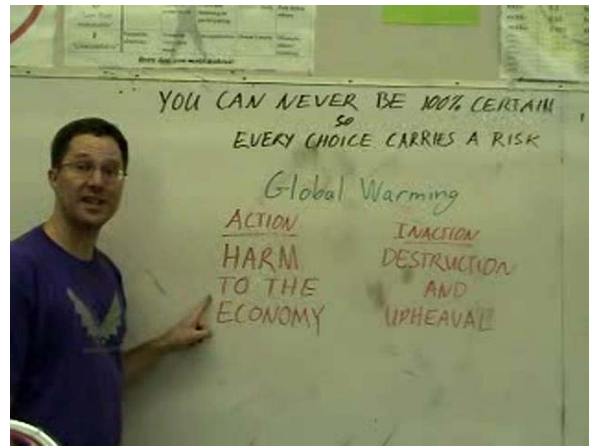 YOU CAN NEVER BE 100% CERTAIN
SO
EVERY CHOICE CARRIES A RISK
Global Warming
ACTION
HARM
TO THE
ECONOMY
INACTION
DESTRUCTION
AND
UPHEAVAL